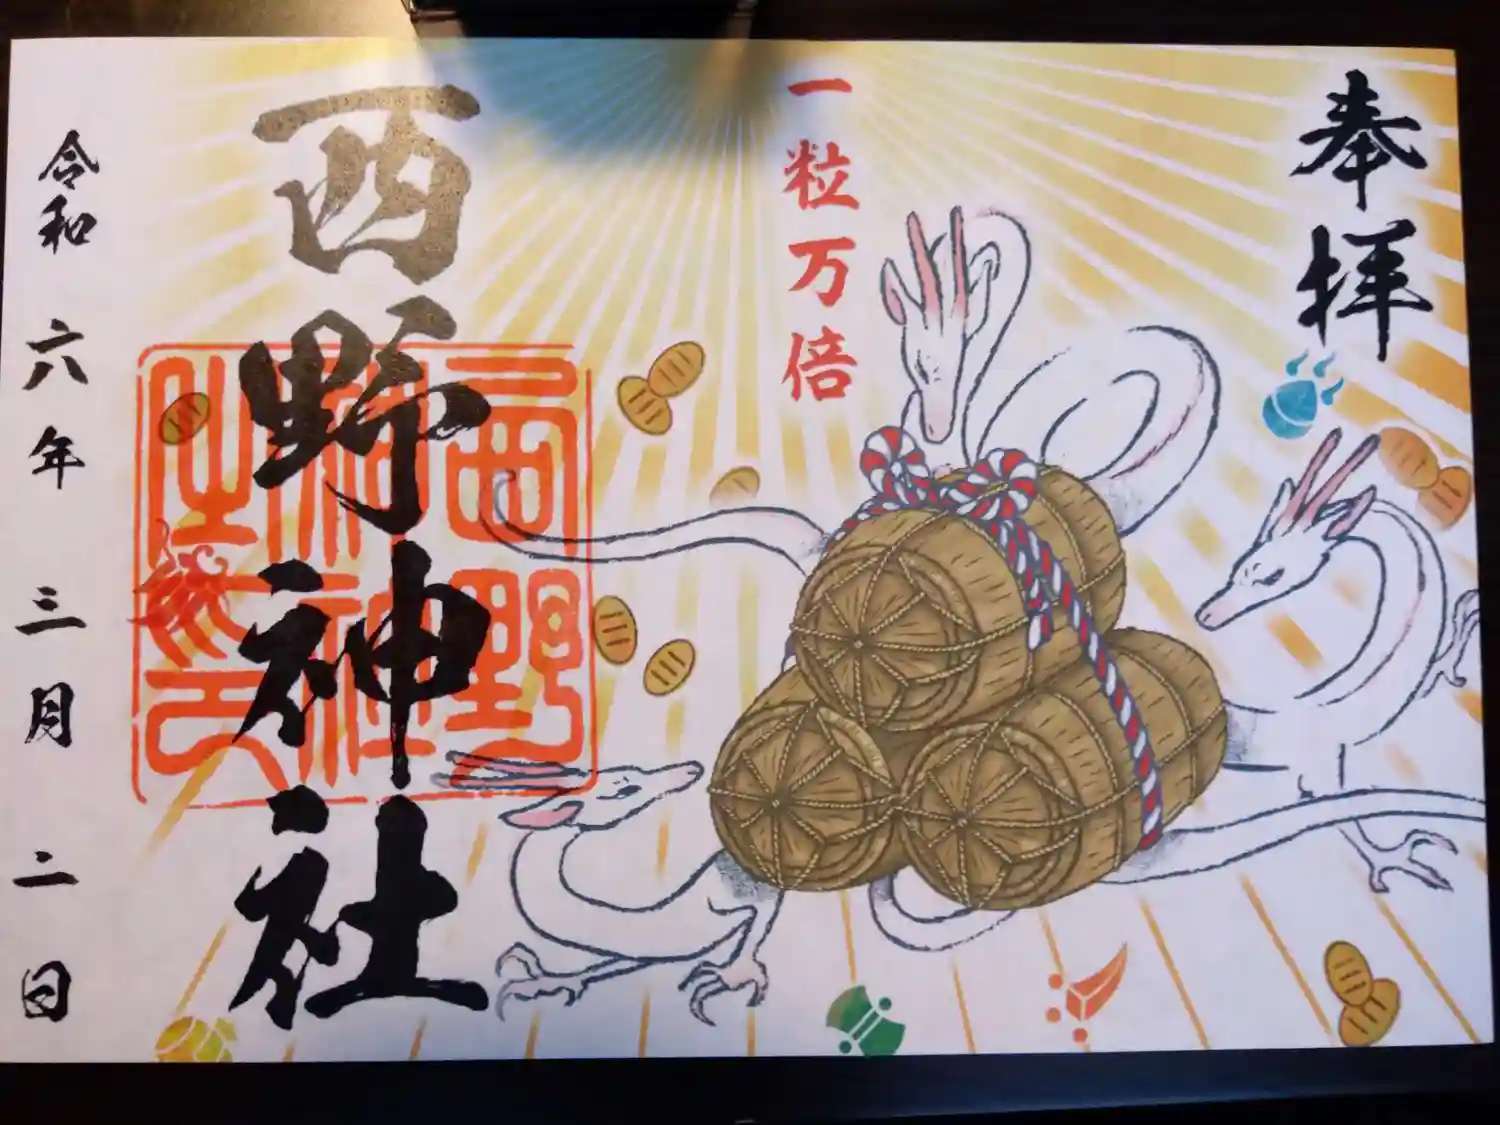 奉拝
一粒万倍
西野神社
西野
神社
之印
令和六年三月二日